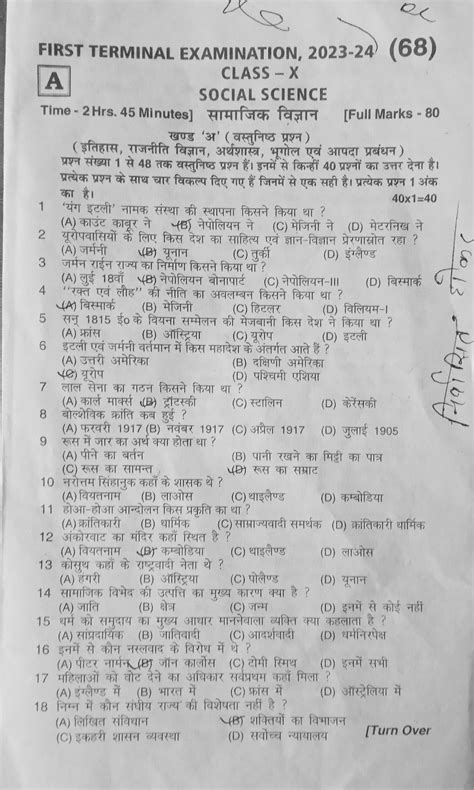 FIRST TERMINAL EXAMINATION, 2023-24 (68)
A
CLASS – X
SOCIAL SCIENCE
Time - 2 Hrs. 45 Minutes] सामाजिक विज्ञान [Full Marks - 80
खण्ड 'अ' ( वस्तुनिष्ठ प्रश्न )
( इतिहास, राजनीति विज्ञान, अर्थशास्त्र, भूगोल एवं आपदा प्रबंधन )
प्रश्न संख्या 1 से 48 तक वस्तुनिष्ठ प्रश्न हैं। इनमें से किन्हीं 40 प्रश्नों का उत्तर देना है।
प्रत्येक प्रश्न के साथ चार विकल्प दिए गए हैं जिनमें से एक सही है। प्रत्येक प्रश्न 1 अंक
का है। 40x1=40
1 'यंग इटली' नामक संस्था की स्थापना किसने किया था ?
(A) काउंट काबूर ने (B) नेपोलियन ने (C) मेजिनी ने (D) मेटरनिख ने
2 यूरोपवासियों के लिए किस देश का साहित्य एवं ज्ञान-विज्ञान प्रेरणास्रोत रहा ?
(A) जर्मनी (B) यूनान (C) तुर्की (D) इंग्लैण्ड
3 जर्मन राईन राज्य का निर्माण किसने किया था ?
(A) लुई 18वाँ (B) नेपोलियन बोनापार्ट (C) नेपोलियन-III (D) बिस्मार्क
4 "रक्त एवं लौह" की नीति का अवलम्बन किसने किया था ?
(A) बिस्मार्क (B) मेजिनी (C) हिटलर (D) विलियम-I
5 सन् 1815 ई० के वियना सम्मेलन की मेजबानी किस देश ने किया था ?
(A) फ्रांस (B) ऑस्ट्रिया (C) यूरोप (D) इटली
6 इटली एवं जर्मनी वर्तमान में किस महादेश के अंतर्गत आते हैं ?
(A) उत्तरी अमेरिका (B) दक्षिणी अमेरिका
(C) यूरोप (D) पश्चिमी एशिया
7 लाल सेना का गठन किसने किया था ?
(A) कार्ल मार्क्स (B) ट्रॉटस्की (C) स्टालिन (D) केरेंसकी
8 बोल्शेविक क्रांति कब हुई ?
(A) फरवरी 1917 (B) नवंबर 1917 (C) अप्रैल 1917 (D) जुलाई 1905
9 रूस में जार का अर्थ क्या होता था ?
(A) पीने का बर्तन (B) पानी रखने का मिट्टी का पात्र
(C) रूस का सामन्त (D) रूस का सम्राट
10 नरोत्तम सिंहानुक कहाँ के शासक थे ?
(A) वियतनाम (B) लाओस (C) थाइलैण्ड (D) कम्बोडिया
11 होआ-होआ आन्दोलन किस प्रकृति का था ?
(A) क्रांतिकारी (B) धार्मिक (C) साम्राज्यवादी समर्थक (D) क्रांतिकारी धार्मिक
12 अंकोरवाट का मंदिर कहाँ स्थित है ?
(A) वियतनाम (B) कम्बोडिया (C) थाइलैण्ड (D) लाओस
13 कोसुथ कहाँ के राष्ट्रवादी नेता थे ?
(A) हंगरी (B) ऑस्ट्रिया (C) पोलैण्ड (D) यूनान
14 सामाजिक विभेद की उत्पति का मुख्य कारण क्या है ?
(A) जाति (B) क्षेत्र (C) जन्म (D) इनमें से कोई नहीं
15 धर्म को समुदाय का मुख्य आधार माननेवाला व्यक्ति क्या कहलाता है ?
(A) सांप्रदायिक (B) जातिवादी (C) आदर्शवादी (D) धर्मनिरपेक्ष
16 इनमें से कौन नस्लवाद के विरोध में थे ?
(A) पीटर नार्मन (B) जॉन कार्लोस (C) टोमी स्मिथ (D) इनमें सभी
17 महिलाओं को वोट देने का अधिकार सर्वप्रथम कहाँ मिला ?
(A) इंग्लैण्ड में (B) भारत में (C) फ्रांस में (D) ऑस्ट्रेलिया में
18 निम्न में कौन संघीय राज्य की विशेषता नहीं है ?
(A) लिखित संविधान (B) शक्तियों का विभाजन
(C) इकहरी शासन व्यवस्था (D) सर्वोच्च न्यायालय
[Turn Over